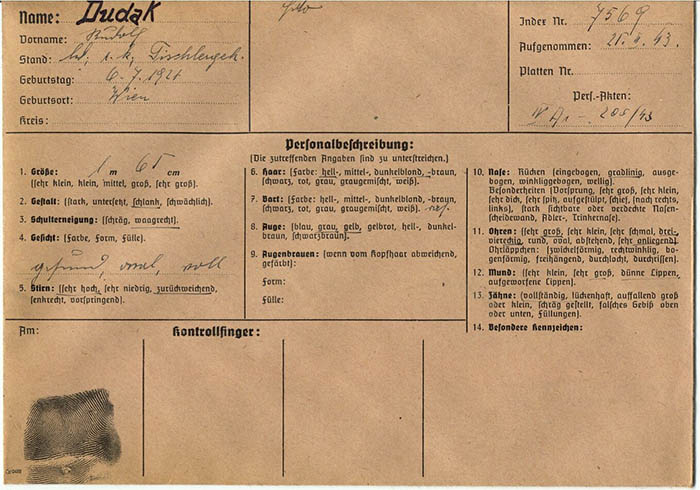 Name: Dudak
Vorname: Rudolf
Stand: led., r. k., Tischlergeh.
Geburtstag: 6. 7. 1921
Geburtsort: Wien
Kreis:
Index Nr. 7569
Aufgenommen: 43.
Platten Nr.
Pers.-Akten:
205/43
Personalbeschreibung:
(Die zutreffenden Angaben sind zu unterstreichen.)
1. Größe: 1 m 65 cm
(sehr klein, klein, mittel, groß, sehr groß).
2. Gestalt: (stark, untersetzt, schlank, schwächlich).
3. Schulterneigung: (schräg, waagrecht).
4. Gesicht: (Farbe, Form, Fülle).
gesund, oval, voll
5. Stirn: (sehr hoch, sehr niedrig, zurückweichend,
senkrecht, vorspringend).
6. Haar: (Farbe: hell-, mittel-, dunkelblond, -braun,
schwarz, rot, grau, graugemischt, weiß).
7. Bart: (Farbe: hell-, mittel-, dunkelblond, -braun,
schwarz, rot, grau, graugemischt, weiß).
8. Auge: (blau, grau, gelb, gelbrot, hell-, dunkel-
braun, schwarzbraun).
9. Augenbrauen: (wenn vom Kopfhaar abweichend,
gefärbt):
Form:
Fülle:
10. Nase: Rücken (eingebogen, gradlinig, ausge-
bogen, winkliggebogen, wellig).
Besonderheiten (Vorsprung, sehr groß, sehr klein,
sehr dick, sehr spitz, aufgestülpt, schief, (nach rechts,
links), stark sichtbare oder verdeckte Nasen-
scheidewand, Adler-, Trinkernase).
11. Ohren: (sehr groß, sehr klein, sehr schmal, drei-,
viereckig, rund, oval, abstehend, sehr anliegend).
Ohrläppchen: (zwickelförmig, rechtwinklig, bo-
genförmig, freihängend, durchlocht, durchrissen).
12. Mund: (sehr klein, sehr groß, dünne Lippen,
aufgeworfene Lippen).
13. Zähne: (vollständig, lückenhaft, auffallend groß
oder klein, schräg gestellt, falsches Gebiß oben
oder unten, Füllungen).
14. Besondere Kennzeichen:
Am:
Kontrollfinger: